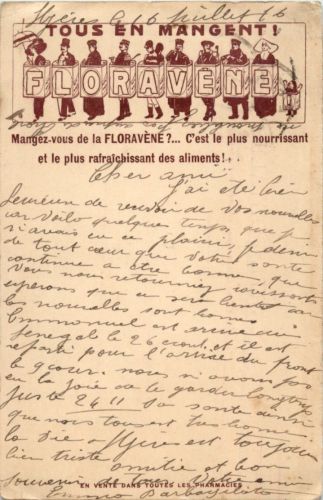 Hyères le 16 Juillet 16
TOUS EN MANGENT !
FLORAVÈNE
Mangez-vous de la FLORAVÈNE ?... C'est le plus nourrissant
et le plus rafraîchissant des aliments !..
Cher ami
J'ai été bien
heureux de recevoir de vos nouvelles
car voilà quelques temps que je
n'avais eu ce plaisir, je désire
de tout cœur que votre santé
continue a être bonne, que
vous nous
esperons que
les nouvelles sont bonnes
Emmanuel est arrivé du
Senegal le 26 et il est
reparti pour l'armée du front
le 9 cour. nous n'avons pas
eu la joie de le garder longtemps
juste 24 H sa santé
que nous tous est très bonne
la vie a Hyeres est toujours
bien triste
amitié et bon
souvenir
EN VENTE DANS TOUTES LES PHARMACIES